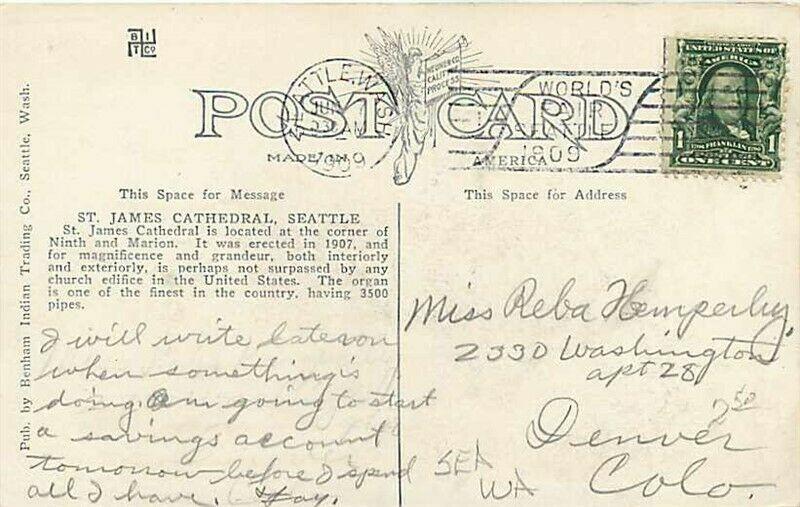 B I
T Co
SEATTLE, WASH.
JUL
23 AM
1909
WORLD'S
FAIR
1909
POST CARD
MADE IN AMERICA
UNITED STATES OF
AMERICA
1 FRANKLIN 1
ONE CENT
This Space for Message
This Space for Address
ST. JAMES CATHEDRAL, SEATTLE
St. James Cathedral is located at the corner of
Ninth and Marion. It was erected in 1907, and
for magnificence and grandeur, both interiorly
and exteriorly, is perhaps not surpassed by any
church edifice in the United States. The organ
is one of the finest in the country, having 3500
pipes.
Pub. by Benham Indian Trading Co., Seattle, Wash.
I will write later on
when something's
doing. Am going to start
a savings account
tomorrow before I spend
all I have. Fay.
Miss Reba Hemperley
2330 Washington
apt 28
Denver
Colo.
2 50
SEA
WA